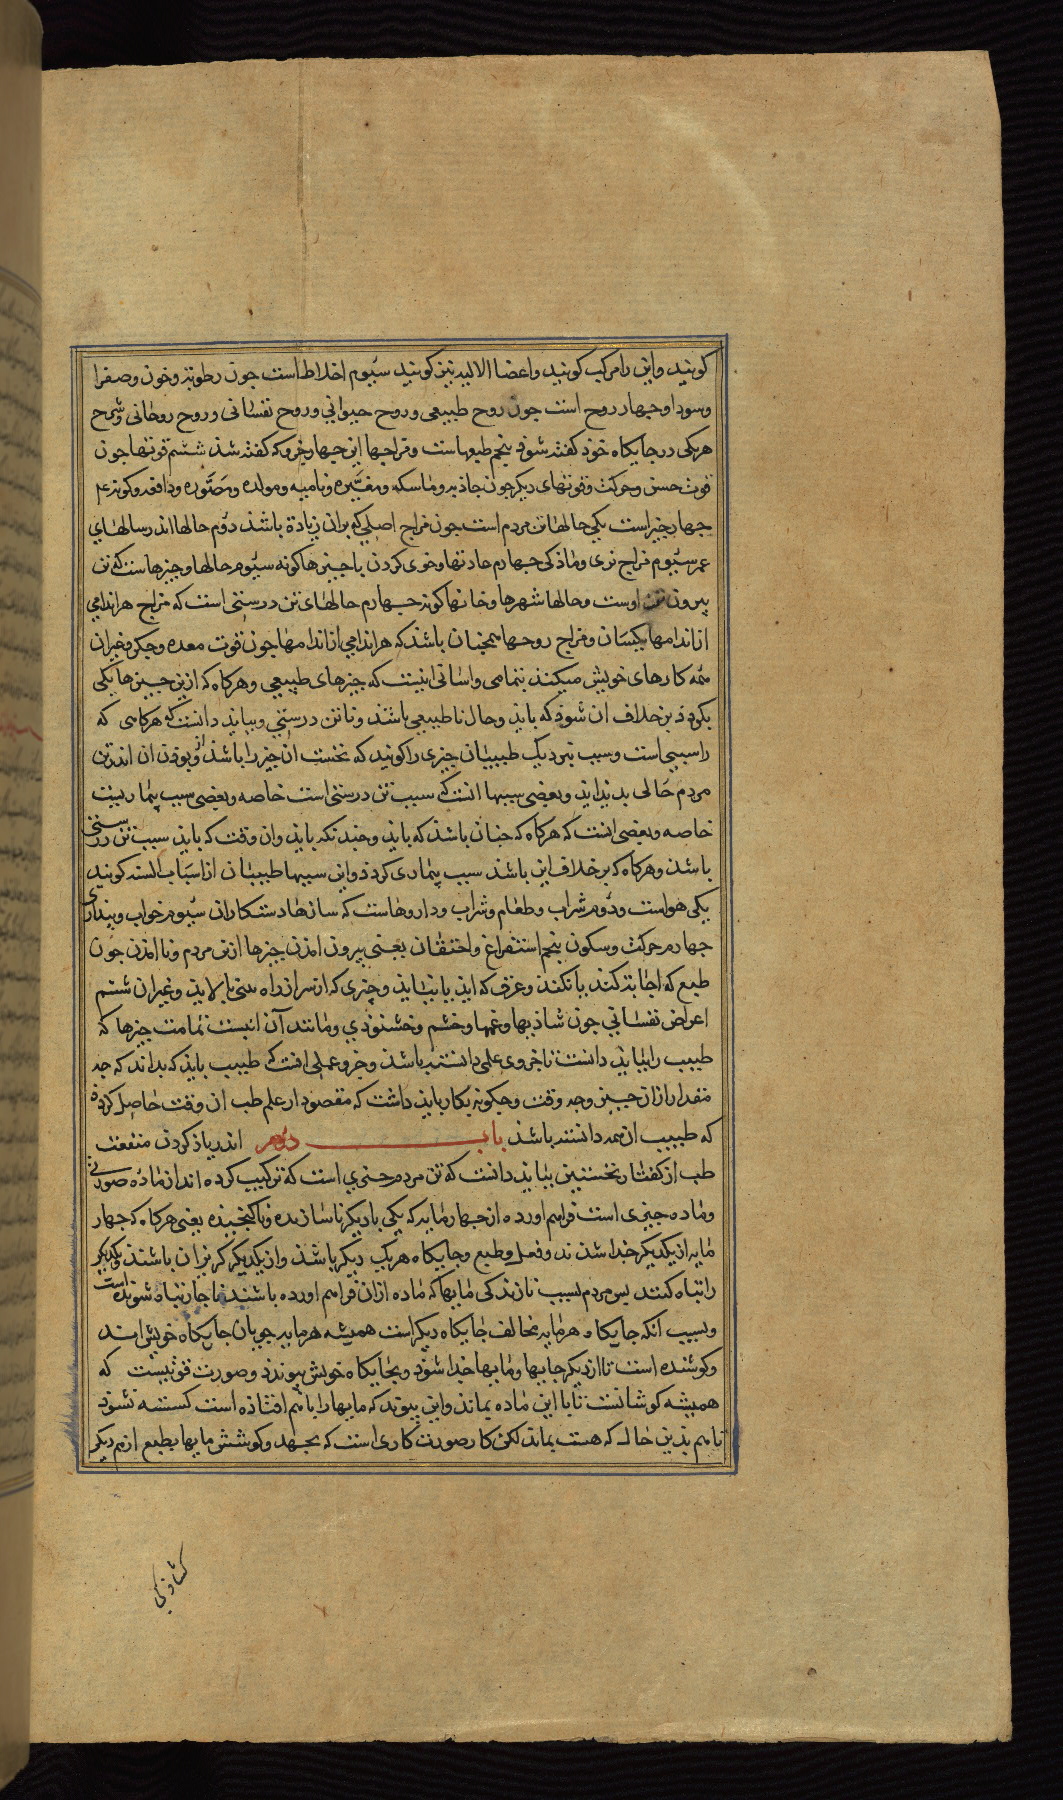 کویند واین را مرکب کویند واعضا الالیه نیز کویند سیوم اخلاط است جون رطوبة وخون وصفرا
وسودا وجهار روح است جون روح طبیعی وروح حیوانی وروح نفسانی وروح روحانی وشرح
هریکی در جایکاه خوذ کفته شوذ پنجم طبعهاست ومزاجها این جهار جیز وکه کفته شذ ششم قوتها جون
قوت حس وحرکت وقوتهای دیکر جون جاذبه وماسکه ومغیّره ونامیه ومولده ومصوّره ودافعه وکونه
جهار جیز است یکی حالهاتن مردم است جون مزاج اصلی که بران زیادة باشذ دوم حالها اندر سالهای
عمر سیوم مزاج نری وماذکی جهارم عادتها وخوی کردن با جیزها کونه سیوم حالها وجیزهاست که تن
بیرون تن اوست وحالها شهرها وخانها کونه جهارم حالهای تن درستی است که مزاج هر اندامی
از اندامها یکسان ومزاج روحها همجنان باشذ که هر اندامی از اندامها جون قوت معده وجکر وغیران
همه کارهای خویش میکنذ بتمامی واسانی اینست که جیزهای طبیعی وهرکاه که ازین جیزها یکی
بکردذ بر خلاف ان شوذ که بایذ وحال نا طبیعی باشذ ونا تن درستی وببایذ دانست که هرکامی که
را سببی است وسبب نزدیک طبیبان جیزی را کویند که نخست ان جیز را باشذ وبوذن ان اندر تن
مردم حالی بدیذ ایذ وبعضی سببها انست که سبب تن درستی است خاصه وبعضی سبب بیماریست
خاصه وبعضی انست که هرکاه که جنان باشذ که بایذ وجندانکه بایذ وان وقت که بایذ سبب تن درستی
باشذ وهرکاه که بر خلاف این باشذ سبب بیماری کردذ واین سببها طبیبان از اسباب السته کویند
یکی هواست ودوم شراب وطعام وشراب وداروهاست که سازها دستکاران سیوم خواب وبیداری
جهارم حرکت وسکون پنجم استفراغ واحتقان یعنی بیرون امذن جیزها از تن مردم ونا امذن جون
طبع که اجابة کند یا نکند وعرق که ایذ یا نیایذ وجیزی که از سر از راه بینی یا بالا ایذ وغیر ان ششم
اعراض نفسانی جون شاذیها وغمها وخشم وخشنوذی ومانند آن اینست تمامت جیزها که
طبیب را ببایذ دانست تا جزوی علمی دانسته باشذ وجزو عملی انست که طبیب بایذ که بداند که جه
مقدار از ان جیز وجه وقت وجکونه بکار بایذ داشت که مقصود از علم طب ان وقت حاصل کردد
که طبیب ان همه دانسته باشذ باب دوم اندر یاذ کردن منفعت
طب از کفتار نخستین ببایذ دانست که تن مردم جیزی است که ترکیب کرده اند از ماده وصورتی
وماده جیزی است فراهم اورده از جهار مایه که یکی با دیکر ناسازنده وناکنجنده یعنی هرکاه که جهار
مایه از یکدیکر جذا شدند وفعل وطبع وجایکاه هریک دیکر باشذ واز یکدیکر کریزان باشند ویکدیکر
را تباه کنند پس مردم بسبب نازندکی مایها که ماده از ان فراهم اورده باشند ناجار تباه شونده است
وبسبب آنکه جایکاه هر مایه مخالف جایکاه دیکر است همیشه هر مایه جویان جایکاه خویش اند
وکوشنده است تا از دیکر جایها ومایها جذا شوذ وبجایکاه خویش بیونذذ وصورت قوتیست که
همیشه کوشانست تا با این ماده بماند واین پیوند که مایها را با هم افتاذه است کسسته نشوذ
تا هم بذین حال که هست بماند لکن کار صورت کاری است که بجهد وکوشش مایها بطبع از هم دیکر